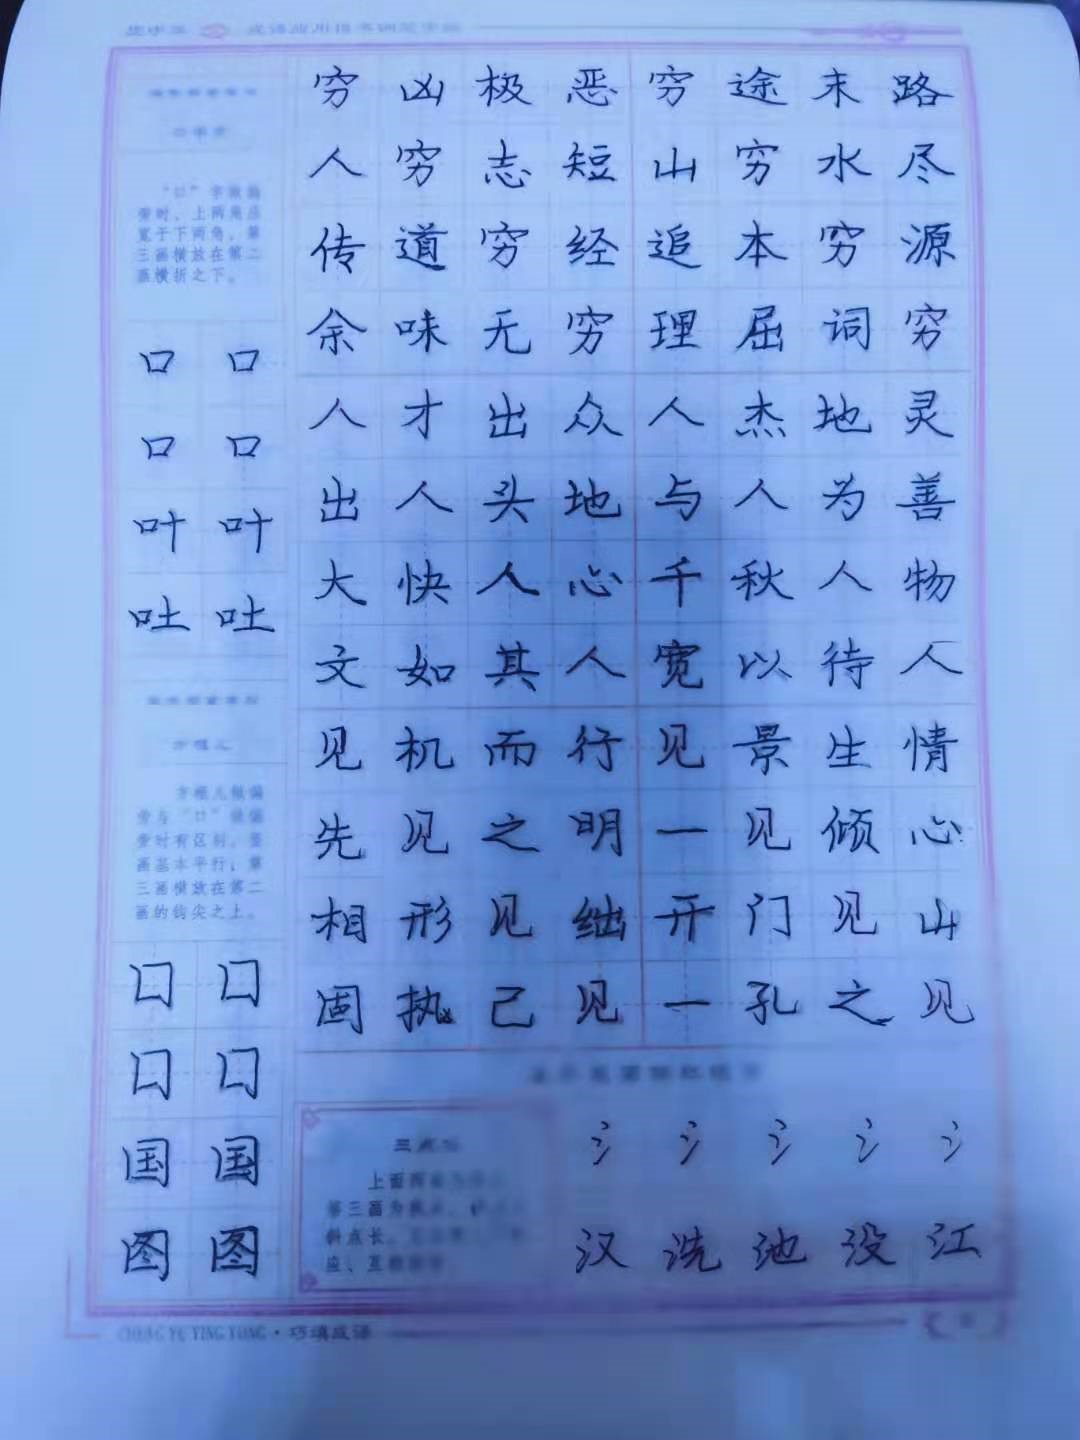 成语应用指导钢笔字帖
穷凶极恶穷途末路
人穷志短山穷水尽
传道穷经追本穷源
余味无穷理屈词穷
人才出众人杰地灵
出人头地与人为善
大快人心千秋人物
文如其人宽以待人
见机而行见景生情
先见之明一见倾心
相形见绌开门见山
固执己见一孔之见
“口”字做偏
旁时，上两角应
宽于下两角，第
三画横放在第二
画横折之下。
口口
口口
叶叶
吐吐
方框儿
方框儿做偏
旁与“口”做偏
旁时有区别，竖
画基本平行，第
三画横放在第二
画的钩尖之上。
囗囗
囗囗
国国
图图
三点水
上面两
第三画为
斜点长，
应、互
氵氵氵氵氵
汉洗池没江
CHENG YU YING YONG·巧填成语